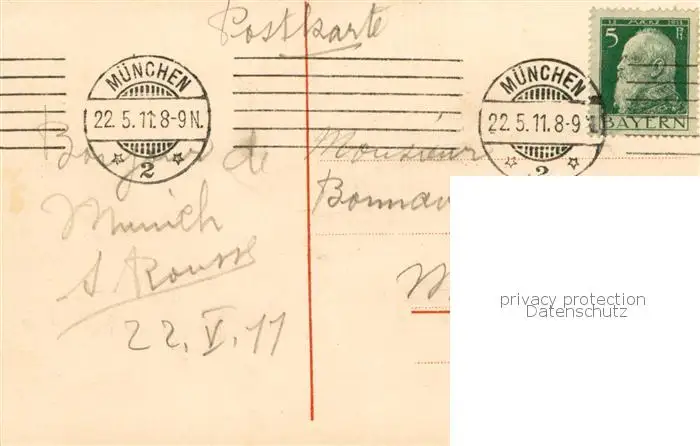 Postkarte
MÜNCHEN
22.5.11.8-9N.
2
MÜNCHEN
22.5.11.8-9
2
12. MÄRZ 1911
5 Pf
BAYERN
Bonjour de
Munich
A Rousse
22.V.11
Monsieur
privacy protection
Datenschutz